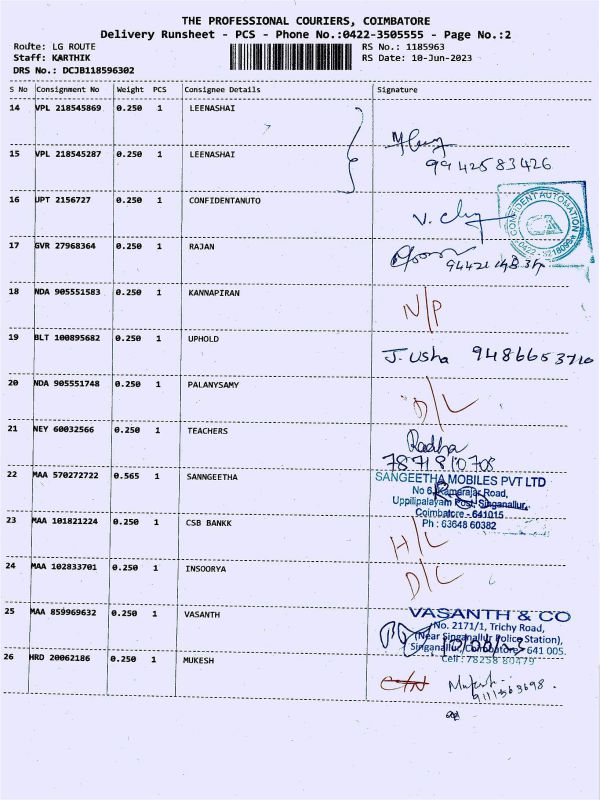 THE PROFESSIONAL COURIERS, COIMBATORE
Delivery Runsheet - PCS - Phone No.:0422-3505555 - Page No.:2
Route: LG ROUTE RS No.: 1185963
Staff: KARTHIK RS Date: 10-Jun-2023
DRS No.: DCJB118596302
S No Consignment No Weight PCS Consignee Details Signature
14 VPL 218545869 0.250 1 LEENASHAI
15 VPL 218545287 0.250 1 LEENASHAI
9942583426
16 JPT 2156727 0.250 1 CONFIDENTANUTO
CONFIDENT AUTOMATION
CA
17 GVR 27968364 0.250 1 RAJAN
18 NDA 905551583 0.250 1 KANNAPIRAN N/P
19 BLT 100895682 0.250 1 UPHOLD J. Usha 9486653710
20 NDA 905551748 0.250 1 PALANYSAMY D/L
21 NEY 60032566 0.250 1 TEACHERS Radha
7871810708
22 MAA 570272722 0.565 1 SANNGEETHA SANGEETHA MOBILES PVT LTD
No 6, Kamarajar Road,
Uppilipalayam Post, Singanallur,
Coimbatore - 641015
Ph : 63648 60382
23 MAA 101821224 0.250 1 CSB BANKK H/L
24 MAA 102833701 0.250 1 INSOORYA D/L
25 MAA 859969632 0.250 1 VASANTH VASANTH & CO
No. 2171/1, Trichy Road,
(Near Singanallur Police Station),
Singanallur, Coimbatore - 641 005.
Cell : 78258 80479
26 HRD 20062186 0.250 1 MUKESH